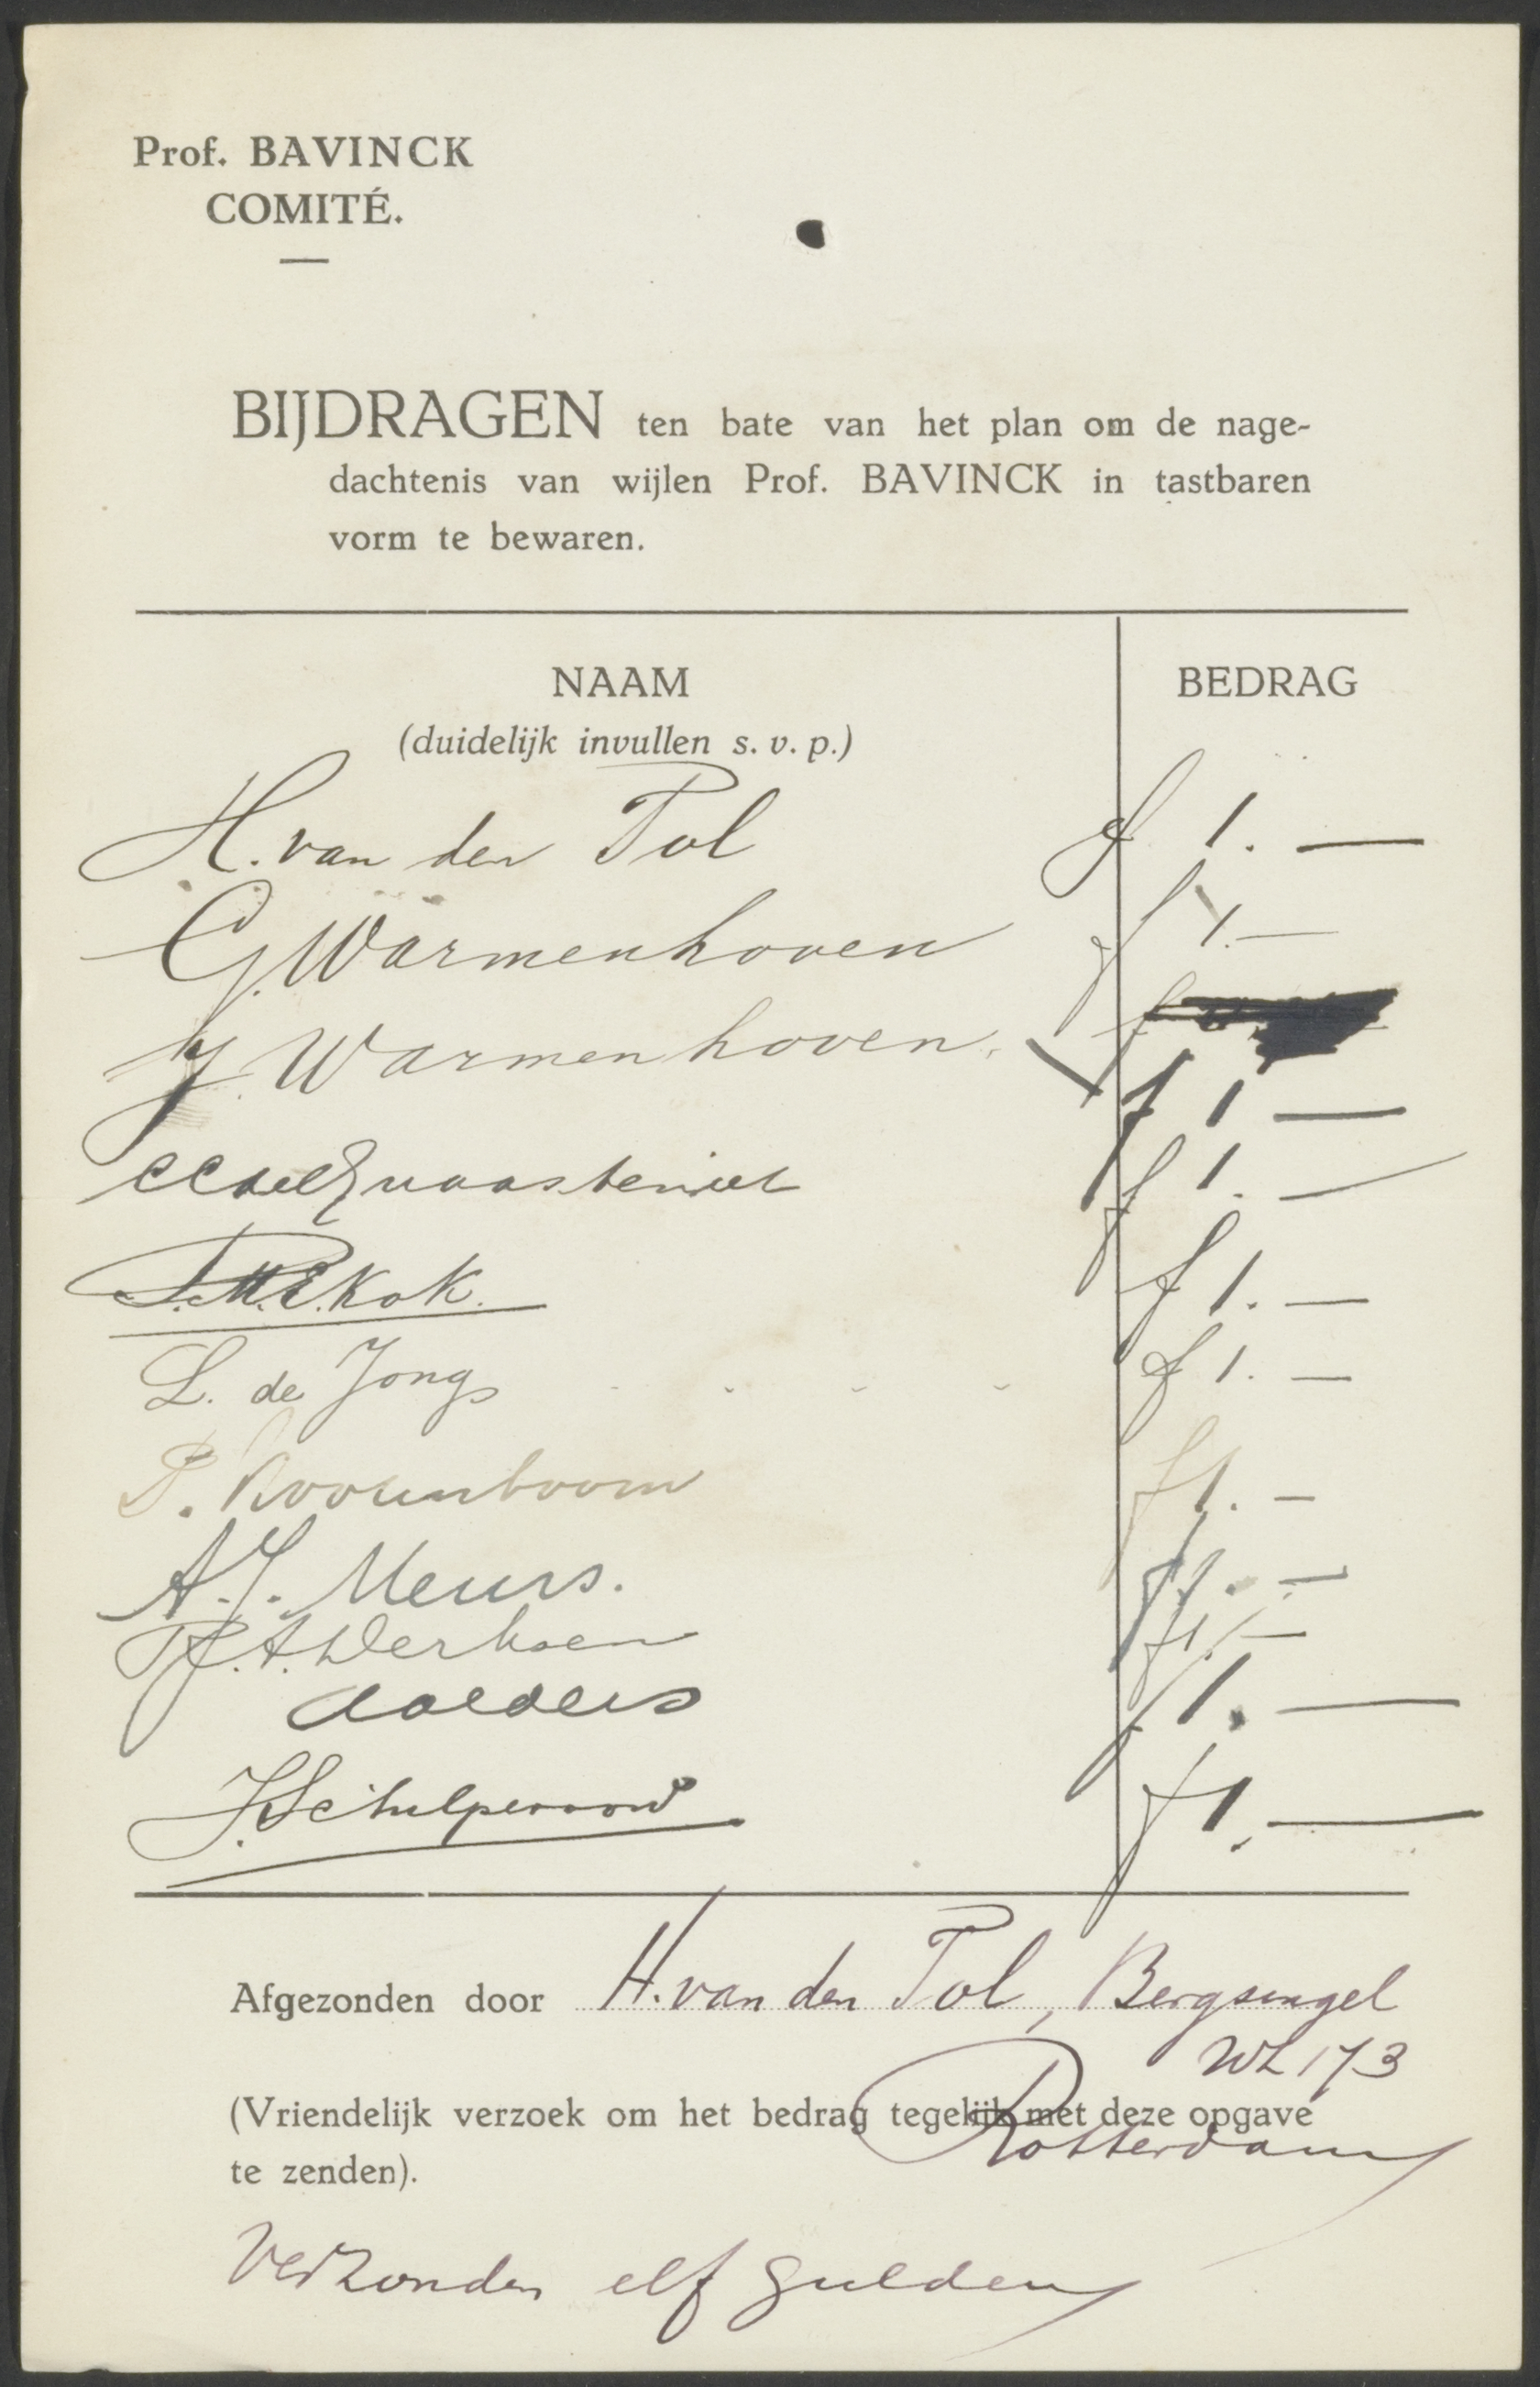 Prof. BAVINCK
COMITÉ.
BIJDRAGEN ten bate van het plan om de nage-
dachtenis van wijlen Prof. BAVINCK in tastbaren
vorm te bewaren.
NAAM BEDRAG
(duidelijk invullen s. v. p.)
H. van der Tol f 1. —
G. Warmenhoven f 1. —
J. Warmenhoven. f 1 —
f 1. —
Kok. f 1. —
L. de Jong f 1. —
P. Roosenboom f 1. —
A. J. Meurs. f 1. —
f 1. —
f 1. —
J. Schelpenoord f 1. —
Afgezonden door H. van der Tol, Bergsingel
173
(Vriendelijk verzoek om het bedrag tegelijk met deze opgave
Rotterdam
te zenden).
Verzonden elf gulden